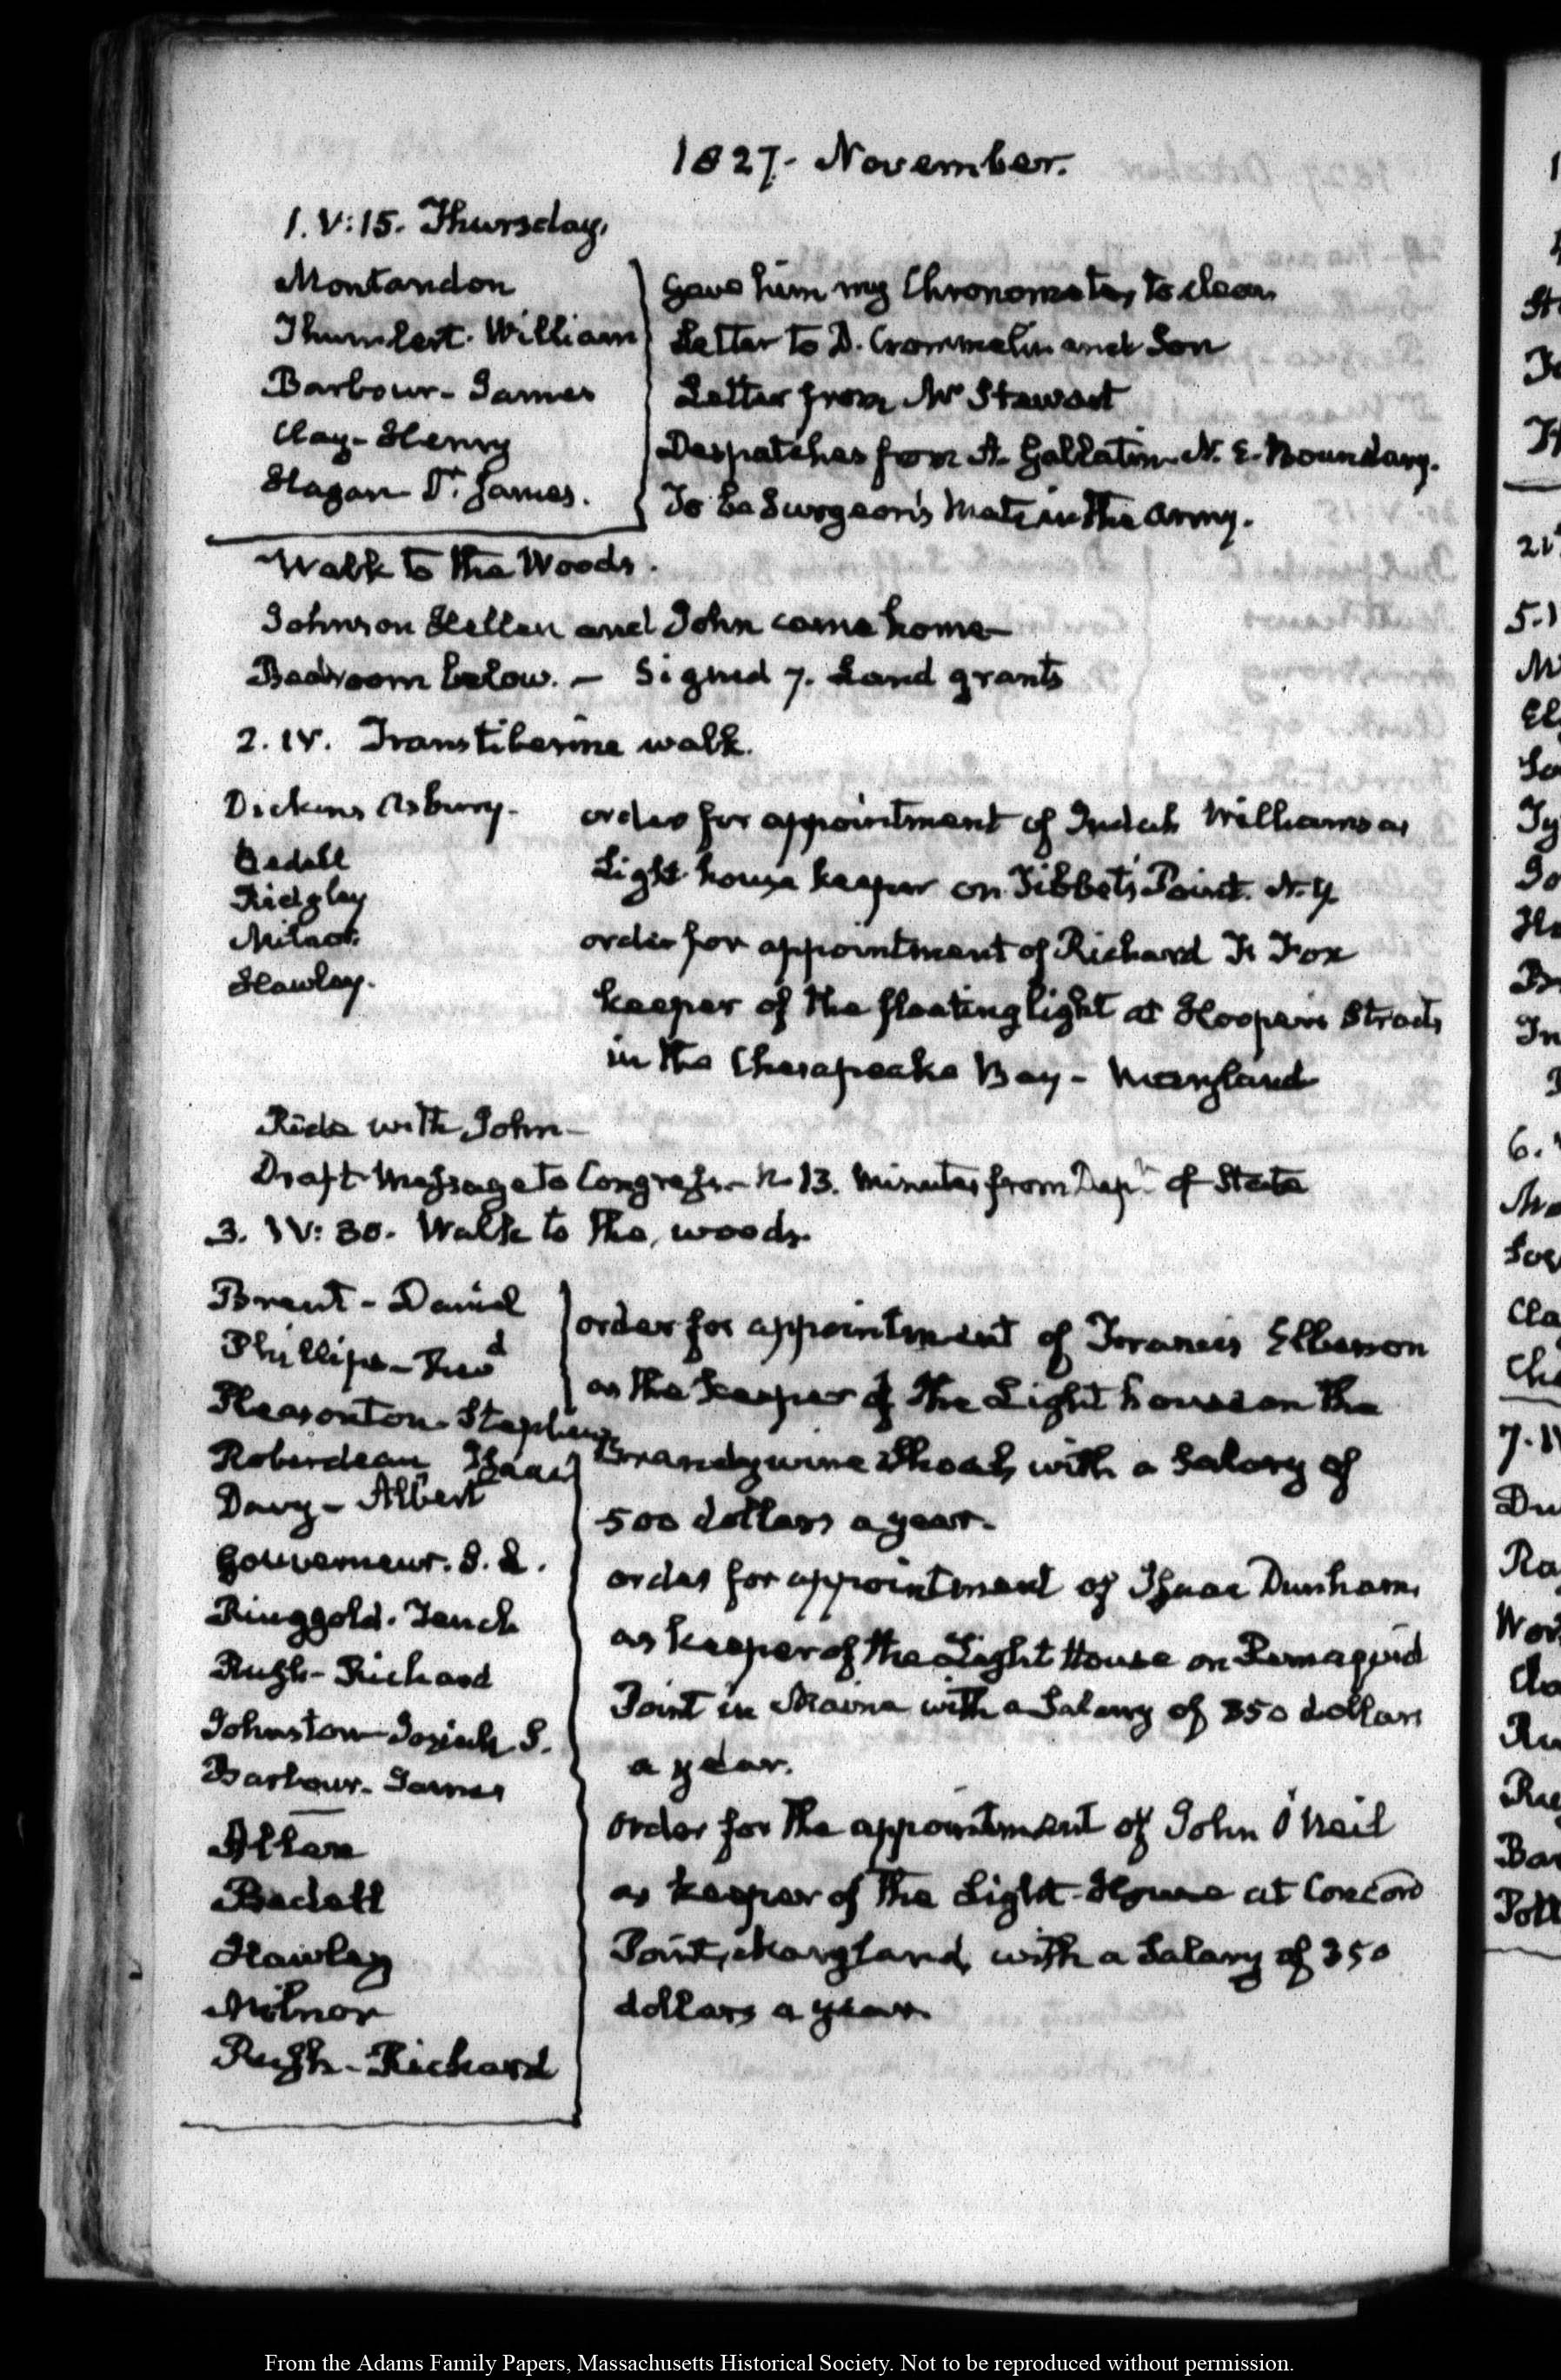 1827. November.
1. V:15. Thursday.
Montandon
Gave him my Chronometer, to clean
Thumlert. William
Letter to D. Crommelin and Son
Barbour- James
Letter from Mr Stewart
Clay- Henry
Despatches from A. Gallatin. N. E. Boundary.
Hagan Dr. James.
To be Surgeon's Mate in the Army.
Walk to the Woods.
Johnson Hellen and John came home—
Bedroom below. — Signed 7. Land grants
2. IV. Transtiberine walk.
Dickins Asbury.
order for appointment of Judah Williams as
Bedell
Light house keeper on Tibbets Point. N.Y.
Ridgley
Milnor.
order for appointment of Richard F. Fox
Hawley.
keeper of the floating light at Hoopers Straits
in the Chesapeake Bay - Maryland
Ride with John—
Draft Message to Congress. N. 13. Minutes from Dept. of State
3. IV:30. Walk to the woods.
Brent - Daniel
order for appointment of Francis Elberson
Phillips-
as the keeper of the Light house on the
Pleasonton. Stephen
Roberdeau Isaac
Brandywine Shoals, with a Salary of
Davy - Albert
500 dollars a year.
Gouverneur. S. L.
order for appointment of Isaac Dunham,
Ringgold. Tench
as keeper of the Light House on Pemaquid
Rush- Richard
Point in Maine with a Salary of 350 dollars
Johnston Josiah S.
a year.
Barbour. James
order for the appointment of John O'Neil
Allen
as keeper of the Light-House at Concord
Bedell
Point, Maryland, with a Salary of 350
Hawley
dollars a year.
Milnor
Rush- Richard
From the Adams Family Papers, Massachusetts Historical Society. Not to be reproduced without permission.